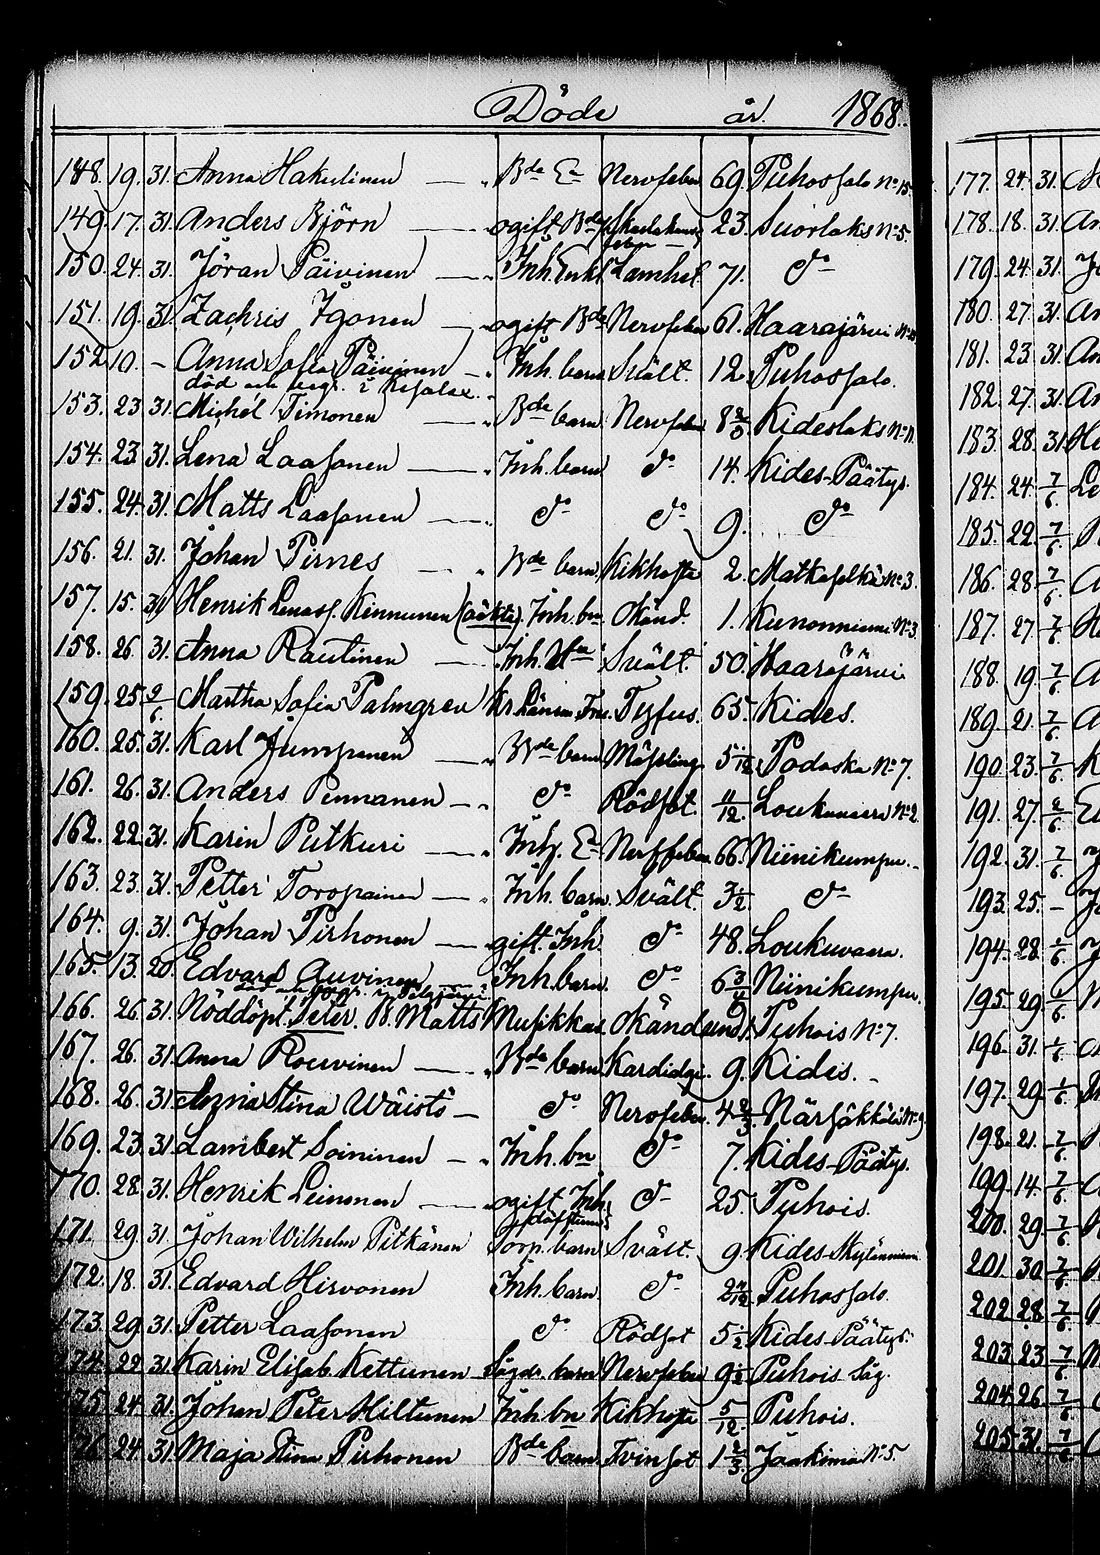 Döde år 1868.
148. 19. 31. Anna Hakulinen Bde Ea Nervfeber 69. Puhossalo No 15.
149. 17. 31. Anders Björn ogift Bde Skarlakans feber 23. Suorlaks No 5.
150. 24. 31. Jöran Päivinen Inh. Enkl. Lamhet. 71. do
151. 19. 31. Zachris Igonen ogift Bde Nervfeber 61. Haarajärvi
152. 10. - Anna Sofia Päivinen Inh. barn Svält. 12. Puhossalo.
död och begr. i
153. 23. 31. Michel Timonen Bde barn Nervfeber 8 Kideslaks No 11.
154. 23. 31. Lena Laasonen Inh. barn do 14. Kides-Päätys.
155. 24. 31. Matts Laasonen do do 9. do
156. 21. 31. Johan Pirnes Bde barn Kikhosta 2. Matkaselkä No 3.
157. 15. 31. Henrik Lenass. Kinnunen (oäkta) Inh. bn Okänd. 1. Kunonniemi No 3.
158. 26. 31. Anna Rautinen Inh. Svält. 50. Haarajärvi
159. 25. 2/6. Martha Sofia Palmgren Kr. Länsm. Typhus. 65. Kides.
160. 25. 31. Karl Jumpanen Bde barn Mässling 5 1/12 Potoska No 7.
161. 26. 31. Anders Pennanen do Rödsot. 11/12. Loukuvaara No 2.
162. 22. 31. Karin Putkuri Inh. Ea Nervfeber. 66. Niinikumpu.
163. 23. 31. Petter Toropainen Inh. barn. Svält. 3 1/2. do
164. 9. 31. Johan Pirhonen gift. Inh. do 48. Loukuvaara.
165. 13. 20. Edvard Auvinen Inh. barn. do 6 3/4 Niinikumpu.
166. 26. 31. Nöddöpt. Peter. B. Matts Musikkas Okänd Puhois No 7.
167. 26. 31. Anna Rouvinen Bde barn 9. Kides.
168. 26. 31. Anna Stina Wäistö do Nervfeber. 4 2/3. Närsäkkälä No 9
169. 23. 31. Lambert Soininen Inh. bn do 7. Kides-Päätys.
170. 28. 31. Henrik Leinonen ogift Inh. do 25. Puhois.
171. 29. 31. Johan Wilhelm Pitkänen Torp. barn Svält. 9. Kides-
172. 18. 31. Edvard Hirvonen Inh. barn. do 2 Puhossalo.
173. 29. 31. Petter Laasonen do Rödsot 5 1/2. Kides Päätys.
174. 22. 31. Karin Elisab. Kettunen Sågds. barn Nervfeber 9 1/2. Puhois Såg.
175. 24. 31. Johan Peter Hiltunen Inh. bn Kikhosta 5/12. Puhois.
176. 24. 31. Maja Stina Pirhonen Bde barn Tvinsot 1 2/3. Jaakima No 5.
177. 24. 31.
178. 18. 31. An
179. 24. 31. Jo
180. 27. 31. An
181. 23. 31. An
182. 27. 31. An
183. 28. 31. He
184. 24. 7/6. Le
185. 22. 7/6.
186. 28. 7/6. A
187. 27. 7/6. He
188. 19. 7/6. A
189. 21. 7/6. A
190. 23. 7/6. K
191. 27. 2/6. Ed
192. 31. 7/6. J
193. 25. - Jo
194. 28. J
195. 29. M
196. 31.
197. 29.
198. 21. 7/6.
199. 14. 7/6.
200. 29. 7/6.
201. 30. 7/6.
202. 28. 7/6.
203. 23. 7/6. M
204. 26. 7/6.
205. 31. 7/6.